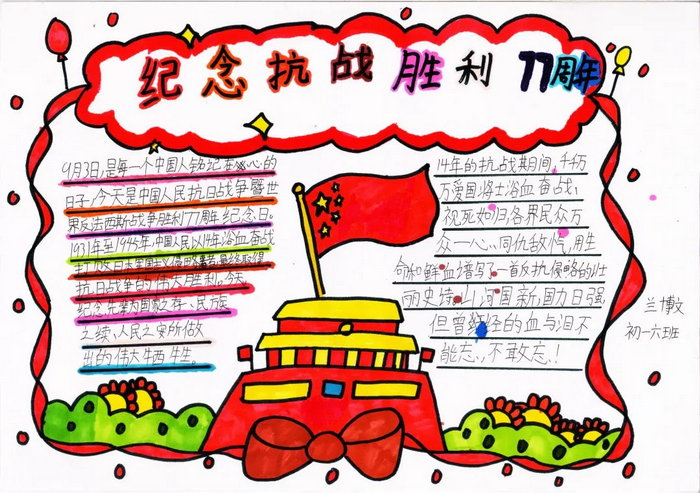 纪念抗战胜利77周年
9月3日,是每一个中国人铭记在心的
日子,今天是中国人民抗日战争暨世
界反法西斯战争胜利77周年纪念日。
1931年至1945年,中国人民以14年浴血奋战
打败日本军国主义侵略者,最终取得
抗日战争的伟大胜利。今天,
纪念先辈为国家之存、民族
之续、人民之安所做
出的伟大牺牲。
14年的抗战期间,千万
万爱国将士浴血奋战,
视死如归各界民众万
众一心、同仇敌忾,用生
命和鲜血谱写了一首反抗侵略的壮
丽史诗。山河国新,国力日强
但曾经的血与泪不
能忘,不敢忘!
兰博文
初一六班